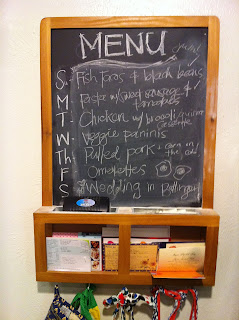 MENU
yum!
S. - Fish Tacos & black beans
M - Pasta w/ sweet sausage & tomatoes
T - Chicken w/ broccoli/quinoa
W. - Veggie paninis
Th - Pulled pork + corn on the cob
F - Omelettes
S - Wedding in